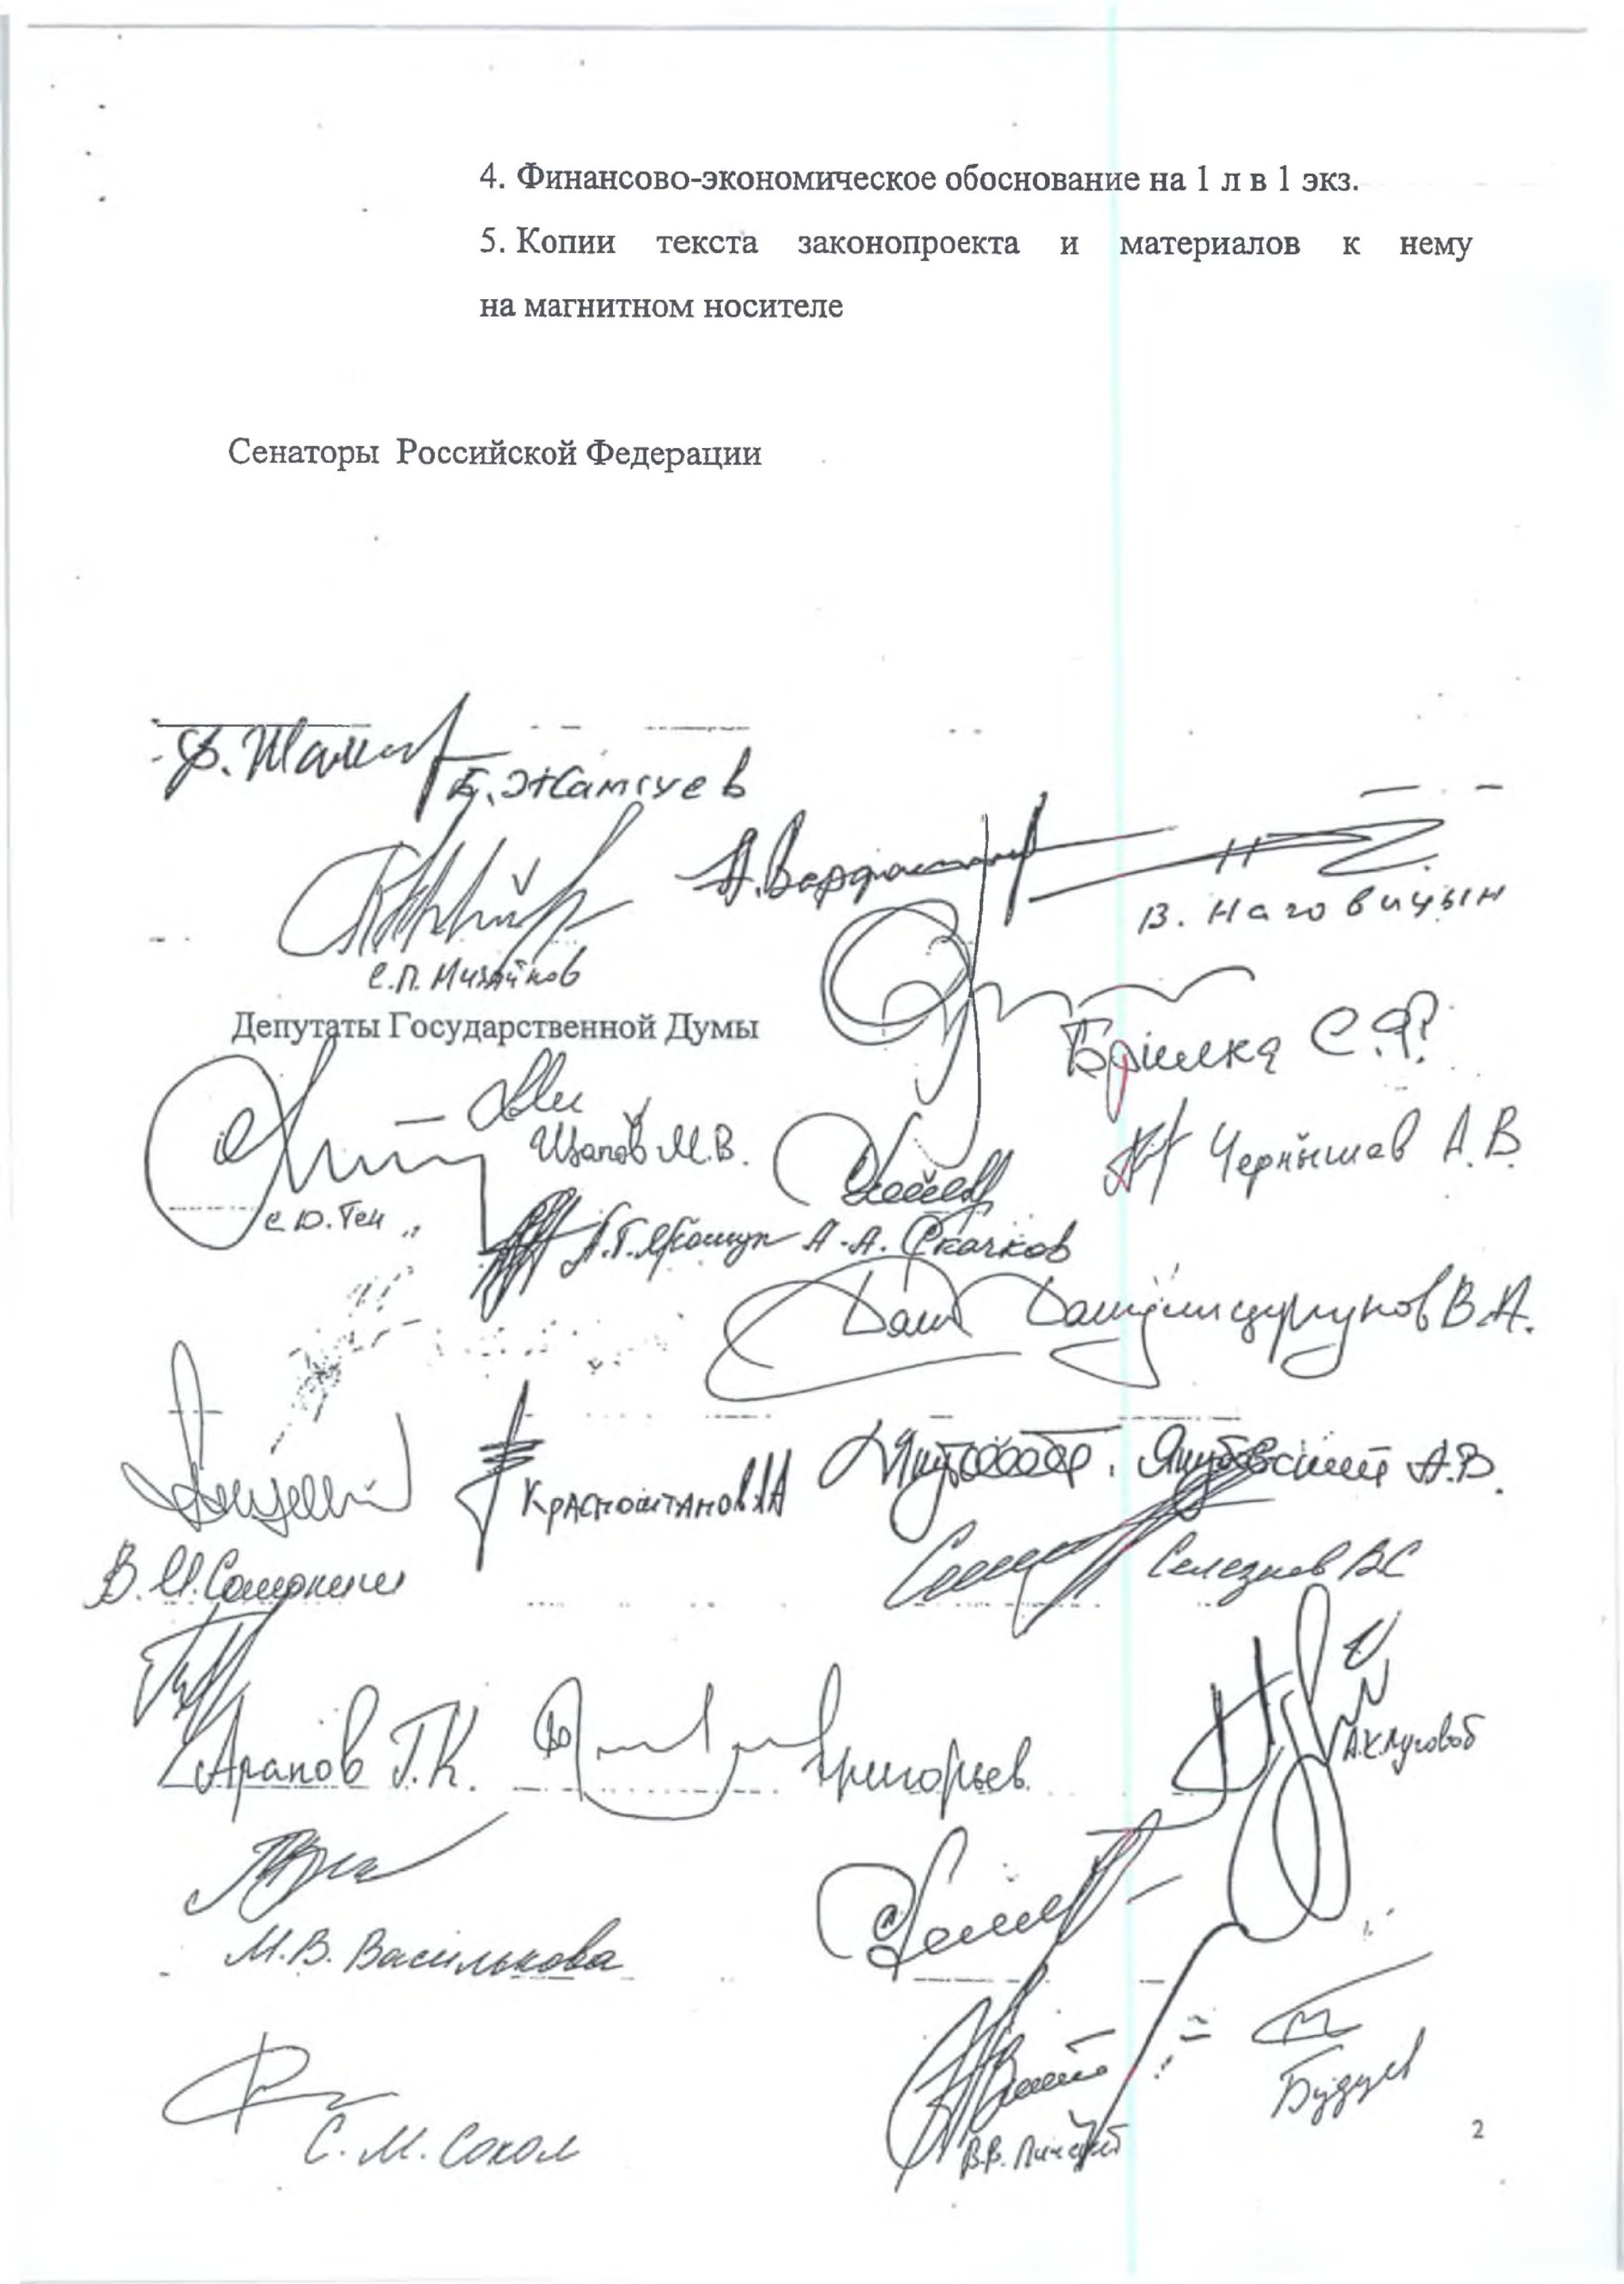 4. Финансово-экономическое обоснование на 1 л в 1 экз.
5. Копии текста законопроекта и материалов к нему
на магнитном носителе
Сенаторы Российской Федерации
Б. Жамсуев
В. Наговицын
С.П. Михайлов
Депутаты Государственной Думы
Брилка С.Ф.
Щапов М.В.
Чернышев А.В.
С.Ю. Тен
А.Г. Якощук А.А. Скачков
Дамдинцурунов В.А.
Красноштанов А.А Якубовский А.В.
В.И. Самокиш
Селезнев В.С
Арапов Г.К.
Григорьев
А.К. Луговой
М.В. Василькова
Будуев
С.М. Сокол
В.В. Пинский
2